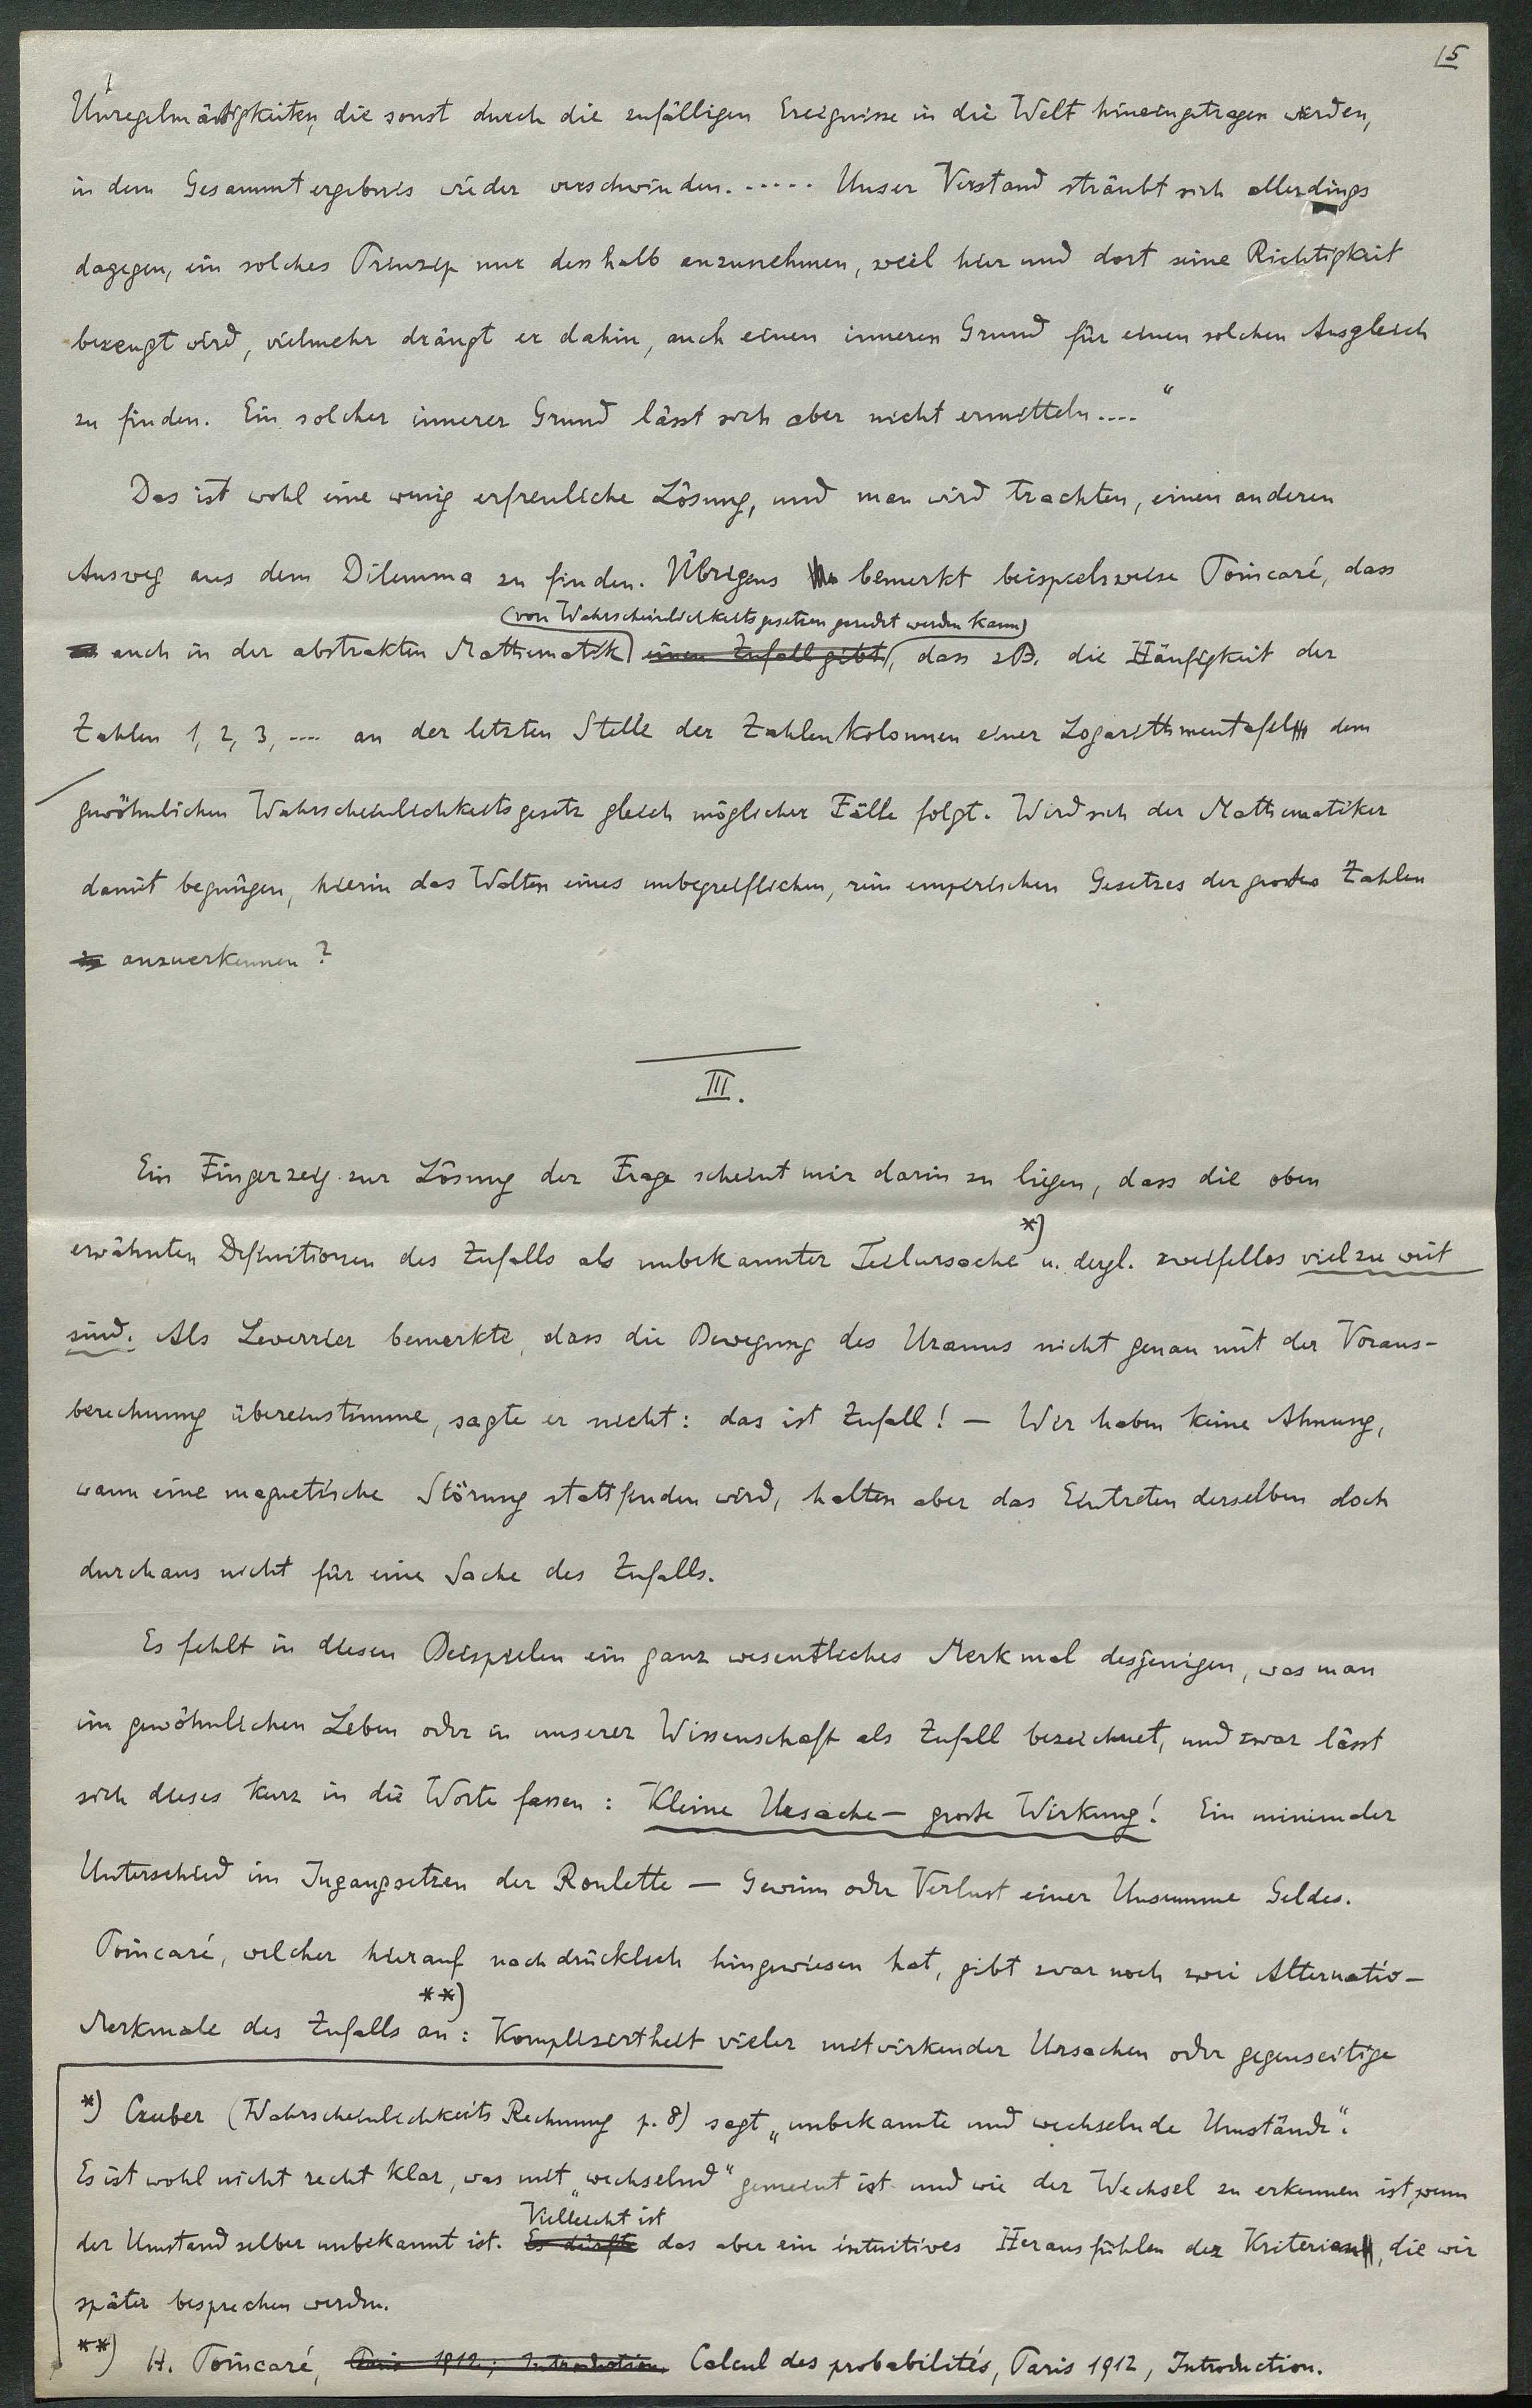 5
Unregelmässigkeiten, die sonst durch die zufälligen Ereignisse in die Welt hineingetragen werden,
in dem Gesammtergebnis wieder verschwinden. ..... Unser Verstand sträubt sich allerdings
dagegen, ein solches Prinzip nur deshalb anzunehmen, weil hier und dort seine Richtigkeit
bezeugt wird, vielmehr drängt er dahin, auch einen inneren Grund für einen solchen Ausgleich
zu finden. Ein solcher innerer Grund lässt sich aber nicht ermitteln...."
Das ist wohl eine wenig erfreuliche Lösung, und man wird trachten, einen anderen
Ausweg aus dem Dilemma zu finden. Übrigens bemerkt beispielsweise Poincaré, dass
(von Wahrscheinlichkeitsgesetzen geredet werden kann)
auch in der abstrakten Mathematik einen Zufall gibt, dass z.B. die Häufigkeit der
Zahlen 1, 2, 3, .... an der letzten Stelle der Zahlenkolonnen einer Logarithmentafel dem
gewöhnlichen Wahrscheinlichkeitsgesetz gleich möglicher Fälle folgt. Wird sich der Mathematiker
damit begnügen, hierin das Walten eines unbegreiflichen, rein empirischen Gesetzes der grossen Zahlen
zu anzuerkennen?
III.
Ein Fingerzeig zur Lösung der Frage scheint mir darin zu liegen, dass die oben
erwähnten Definitionen des Zufalls als unbekannter Teilursache *) u. dergl. zweifellos viel zu weit
sind. Als Leverrier bemerkte, dass die Bewegung des Uranus nicht genau mit der Voraus-
berechnung übereinstimme, sagte er nicht: das ist Zufall! — Wir haben keine Ahnung,
wann eine magnetische Störung stattfinden wird, halten aber das Eintreten derselben doch
durchaus nicht für eine Sache des Zufalls.
Es fehlt in diesen Beispielen ein ganz wesentliches Merkmal desjenigen, was man
im gewöhnlichen Leben oder in unserer Wissenschaft als Zufall bezeichnet, und zwar lässt
sich dieses kurz in die Worte fassen: Kleine Ursache — grosse Wirkung! Ein minimaler
Unterschied im Ingangsetzen der Roulette — Gewinn oder Verlust einer Unsumme Geldes.
Poincaré, welcher hierauf nachdrücklich hingewiesen hat, gibt zwar noch zwei Alternativ-
Merkmale des Zufalls an **): Kompliziertheit vieler mitwirkender Ursachen oder gegenseitige
*) Czuber (Wahrscheinlichkeits Rechnung p. 8) sagt „unbekannte und wechselnde Umstände".
Es ist wohl nicht recht klar, was mit „wechselnd" gemeint ist und wie der Wechsel zu erkennen ist, wenn
Vielleicht ist
der Umstand selber unbekannt ist. Es dürfte das aber ein intuitives Herausfühlen der Kriterien, die wir
später besprechen werden.
**) H. Poincaré, Paris 1912; Introduction. Calcul des probabilités, Paris 1912, Introduction.